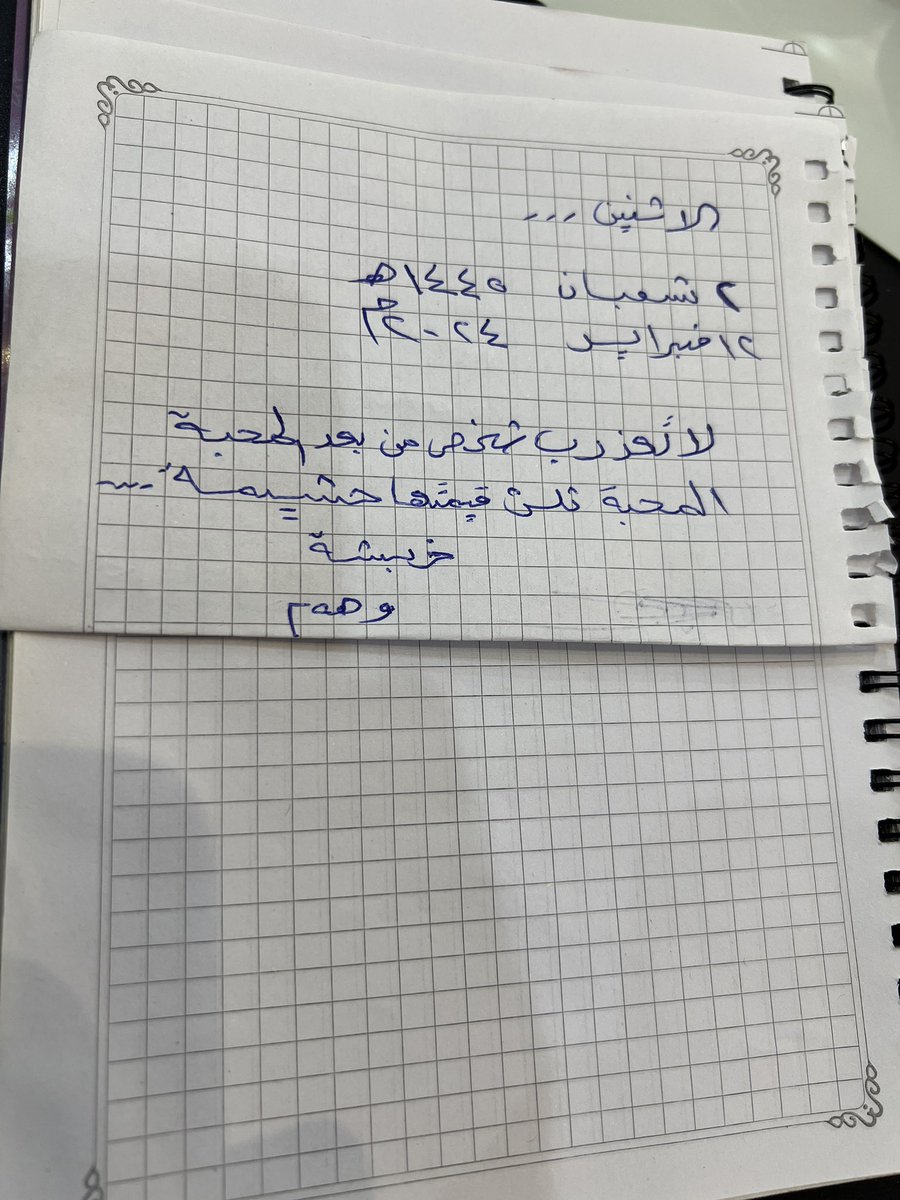 الاثنين ...
٢ شعبان ١٤٤٥هـ
١٢ فبراير ٢٠٢٤م
لا تعزرب شخص من بعد المحبة
المحبة تلق قيمتها حشيمه ...
خربشة
وهم